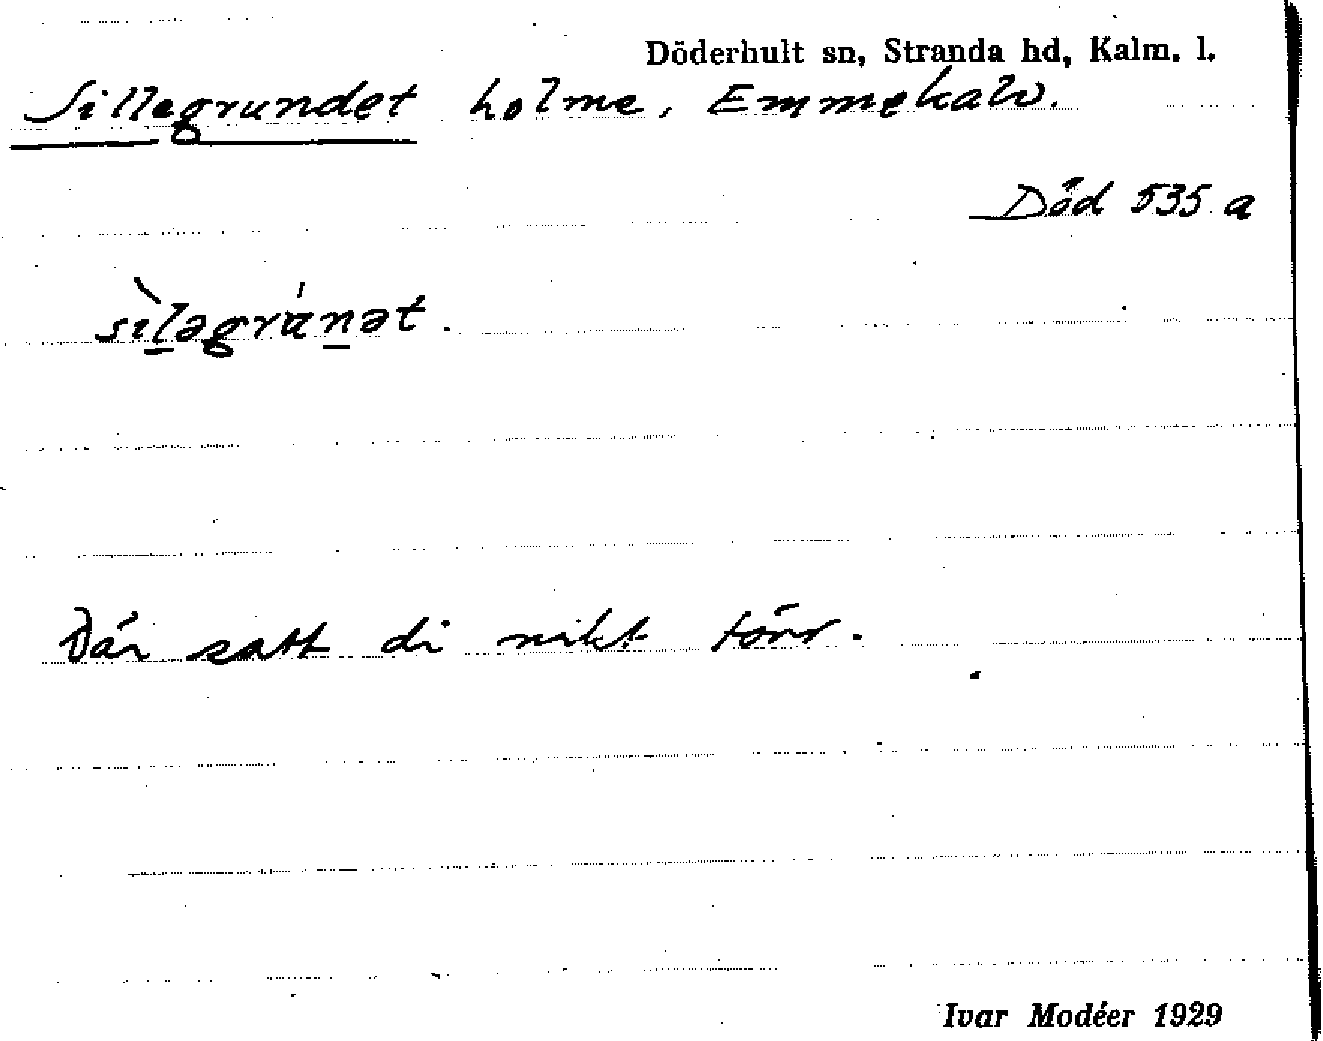 Döderhult sn, Stranda hd, Kalm. l.
Sillegrundet holme, Emmekalv.
Död 535 a
sìlaəgránət.
Där satt di mikt förr.
Ivar Modéer 1929